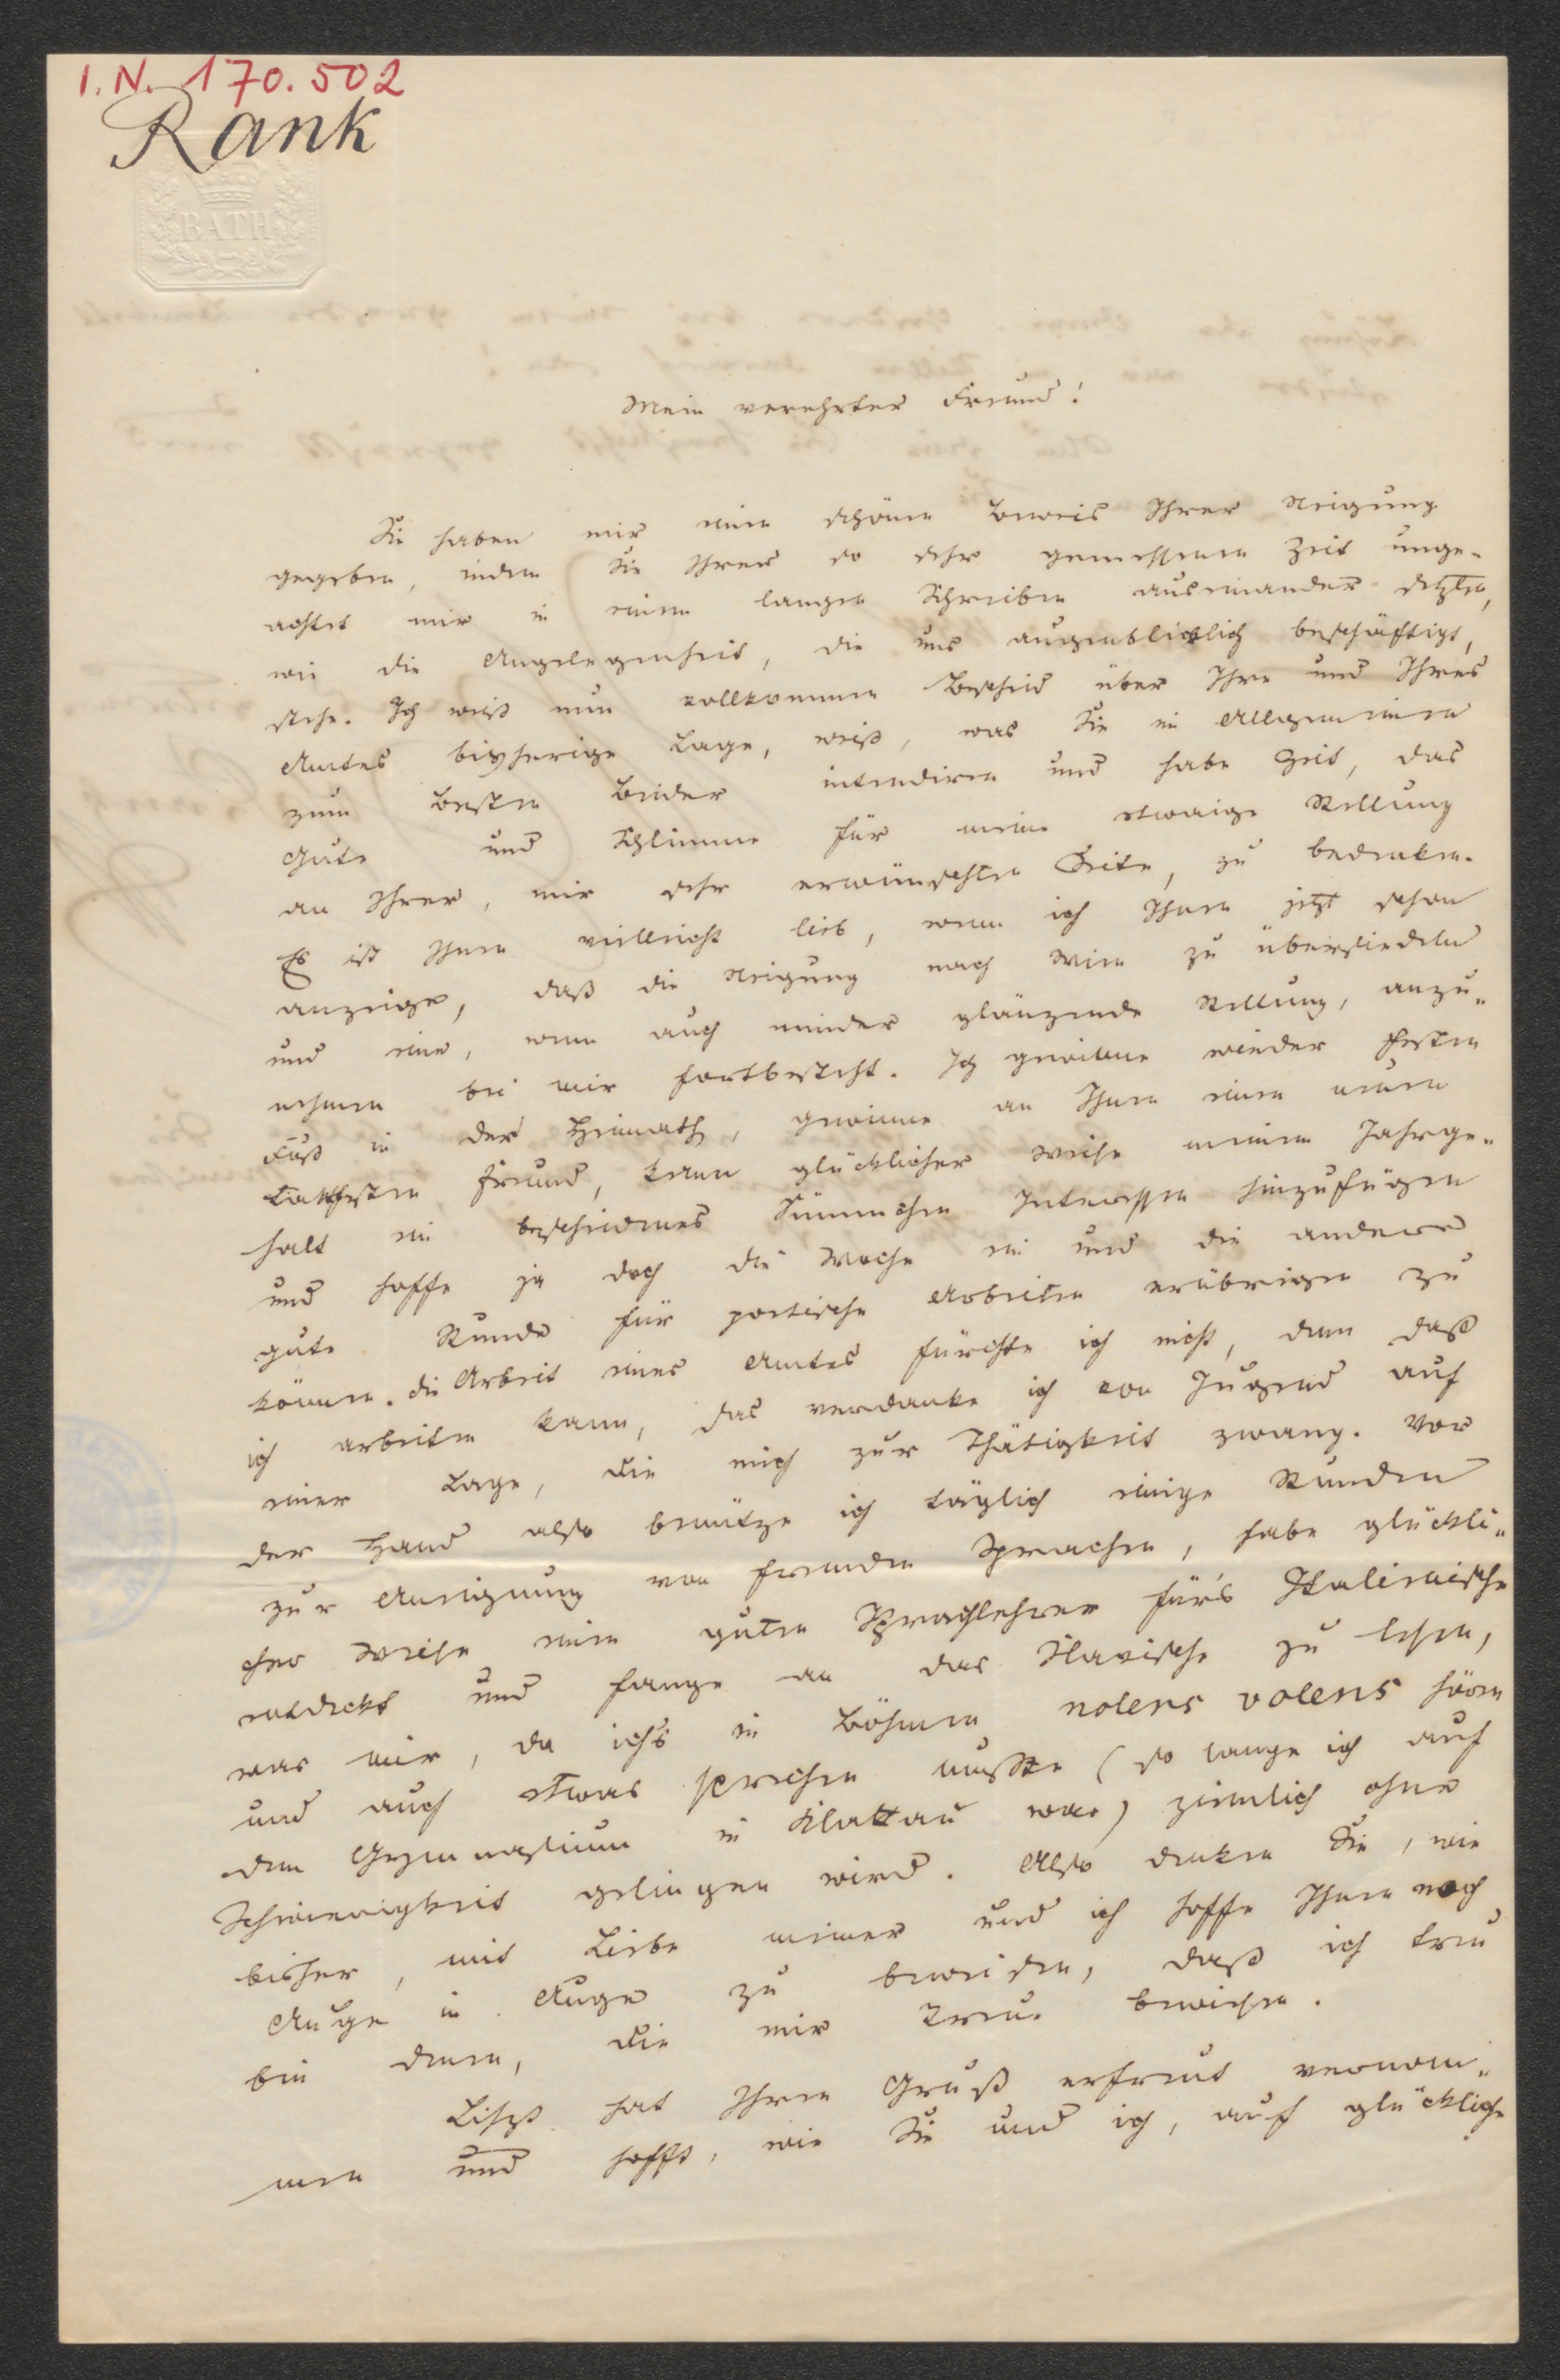 I.N. 170.502
Rank
BATH
Mein verehrter Freund!
Sie haben mir einen schönen Beweis Ihrer Neigung
gegeben, indem Sie Ihrer so sehr gemessenen Zeit unge-
achtet mir in einem langen Schreiben auseinander setzten,
wie die Angelegenheit, die uns augenblicklich beschäftigt,
stehe. Ich weiß nun vollkommen Bescheid über Ihre und Ihres
Amtes bisherige Lage, weiß, was Sie im Allgemeinen
zum Besten Beider intendiren und habe Zeit, das
Gute und Schlimme für meine etwaige Stellung
an Ihrer, mir sehr erwünschten Seite, zu bedenken.
Es ist Ihnen vielleicht lieb, wenn ich Ihnen jetzt schon
anzeige, daß die Neigung nach Wien zu übersiedeln
und eine, wenn auch minder glänzende Stellung, anzu-
nehmen bei mir fortbesteht. Ich gewinne wieder festen
Fuß in der Heimath, gewinne an Ihnen einen neuen
taktfesten Freund, kann glücklicher Weise meinem Jahrge-
halt ein bescheidenes Sümmchen Interessen hinzufügen
und hoffe ja doch die Woche ein und die andere
gute Stunde für poetische Arbeiten erübrigen zu
können. Die Arbeit eines Amtes fürchte ich nicht, denn daß
ich arbeiten kann, das verdanke ich von Jugend auf
einer Lage, die mich zur Thätigkeit zwang. Vor
der Hand also benütze ich täglich einige Stunden
zur Aneignung von fremden Sprachen, habe glückli-
cher Weise einen guten Sprachlehrer für's Italienische
entdeckt und fange an das Slavische zu lesen,
was mir, da ich's in Böhmen nolens volens hören
und auch etwas sprechen mußte (so lange ich auf
dem Gymnasium in Klattau war) ziemlich ohne
Schwierigkeit gelingen wird. Also denken Sie, wie
bisher, mit Liebe meiner und ich hoffe Ihnen noch
Auge in Auge zu beweisen, daß ich treu
bin denen, die mir Treue bewiesen.
Liszt hat Ihren Gruß erfreut vernom-
men und hofft, wie Sie und ich, auf glückliche